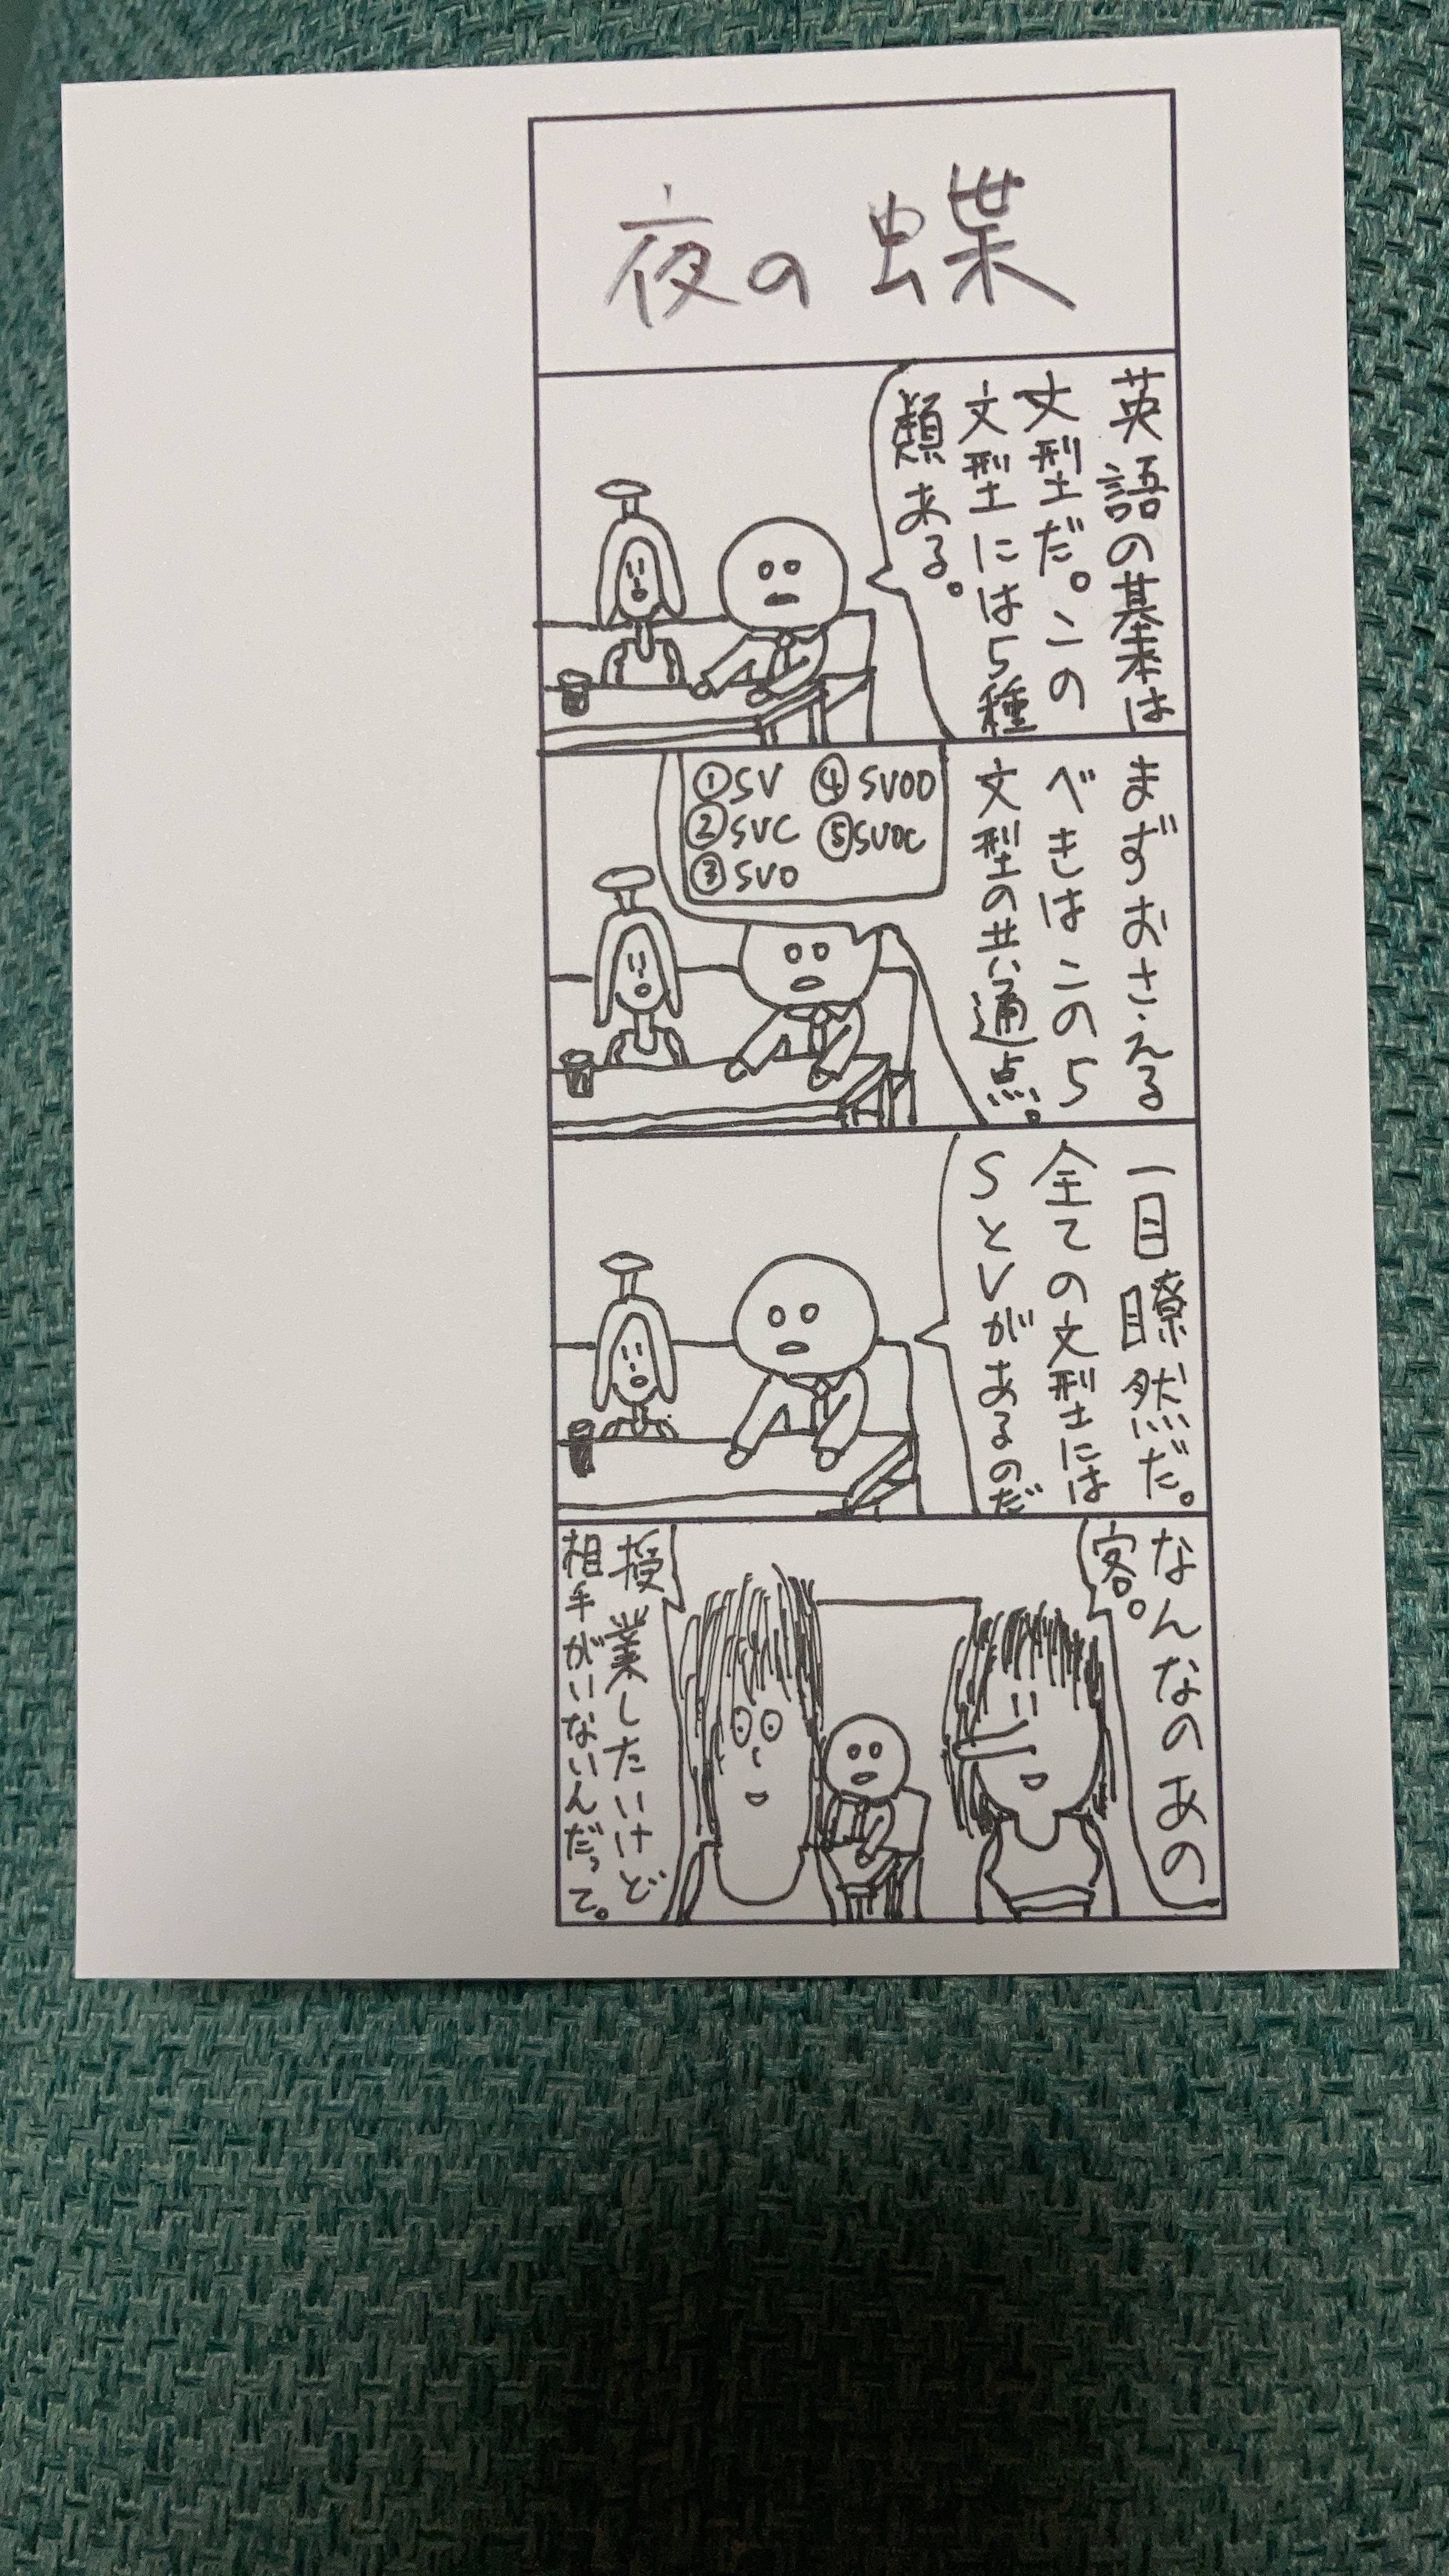 夜の蝶
英語の基本は
文型だ。この
文型には5種
類ある。
まずおさえる
べきはこの5
文型の共通点。
①SV ④SVOO
②SVC ⑤SVOC
③SVO
一目瞭然だ。
全ての文型には
SとVがあるのだ
なんなのあの
客。
授業したいけど
相手がいないんだって。